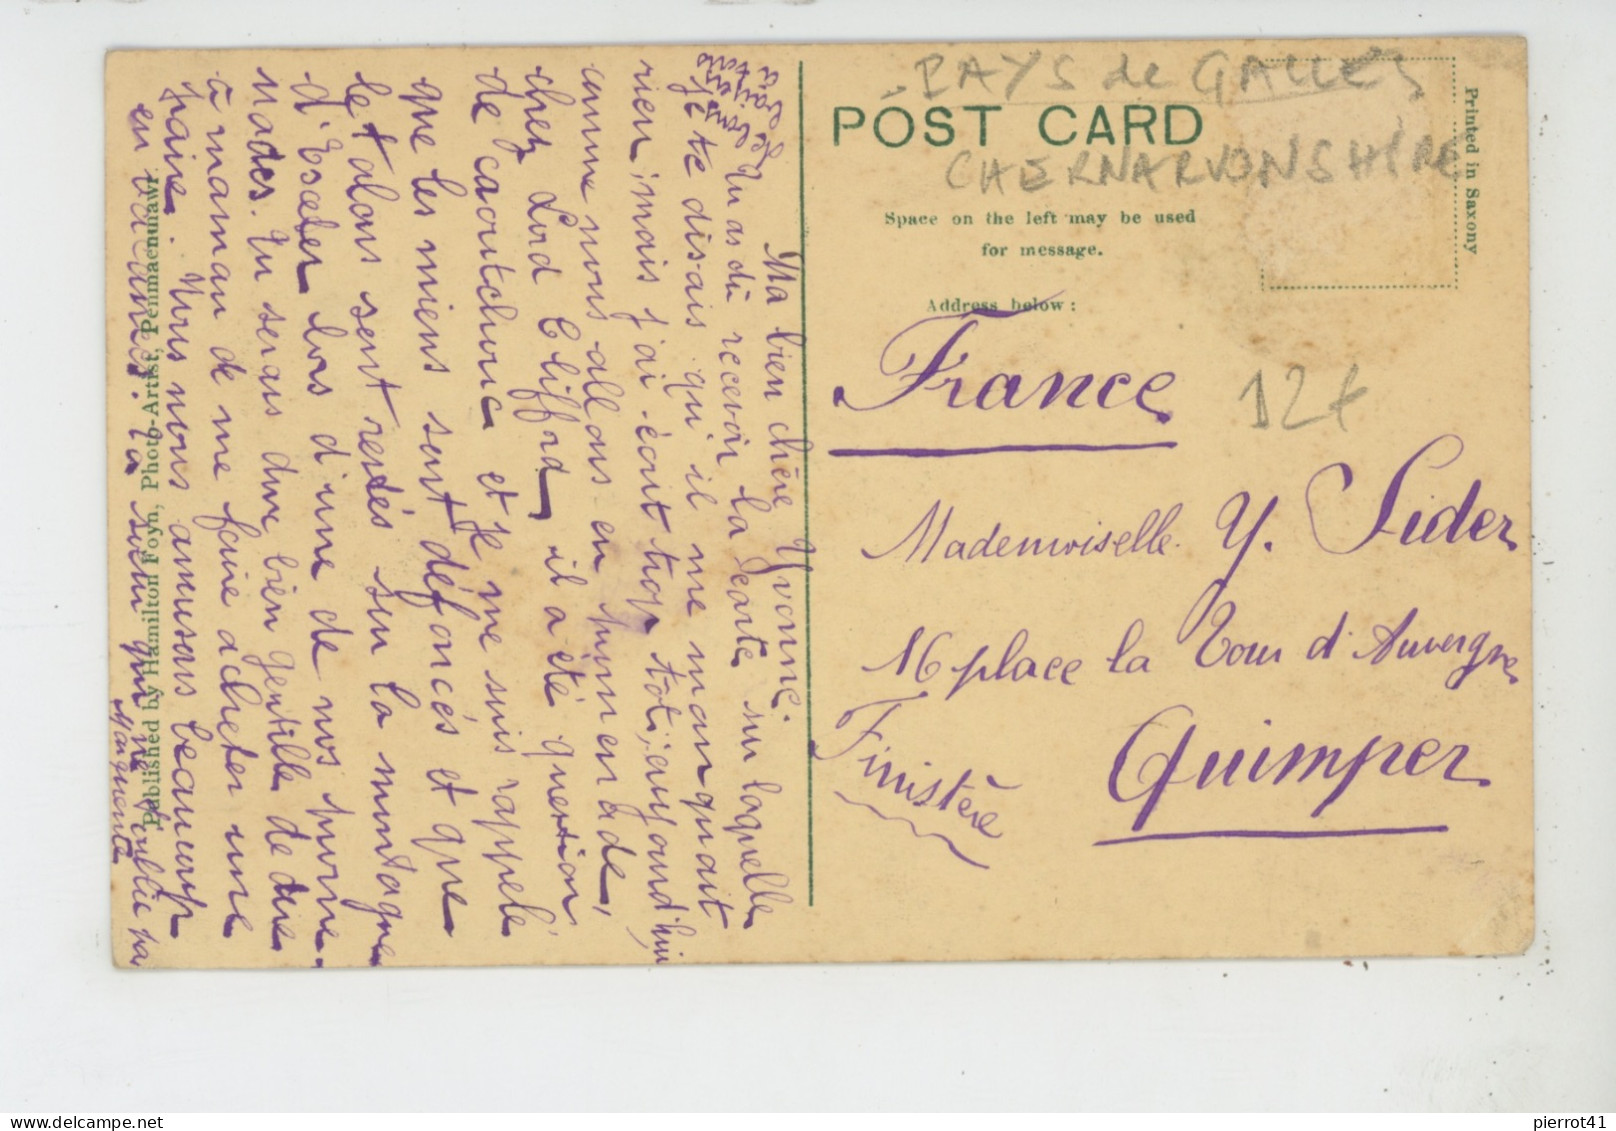 PAYS de GALLES
POST CARD
CHERNARVONSHIRE
Space on the left may be used
for message.
Address below :
Printed in Saxony
France
12€
Mademoiselle Y. Sider
16 place la Tour d'Auvergne
Quimper
Finistère
Ma bien chère Yvonne.
Tu as dû recevoir la carte sur laquelle
je te disais qu'il me manquait
rien, mais j'ai écrit trop tôt, aujourd'hui
comme nous allons en promenade,
chez Lord Clifford, il a été question
de caoutchouc et je me suis rappelé
que les miens sont défoncés et que
les talons sont restés sur la montagne
d'Exeter lors d'une de nos prome-
nades. Tu serais donc bien gentille de dire
à maman de me faire acheter une
paire. Nous nous amusons beaucoup
en vacances. Ta sœur qui ne t'oublie pas
Marguerite
Published by Hamilton Foyn, Photo-Artist, Penmaenmawr.
pierrot41